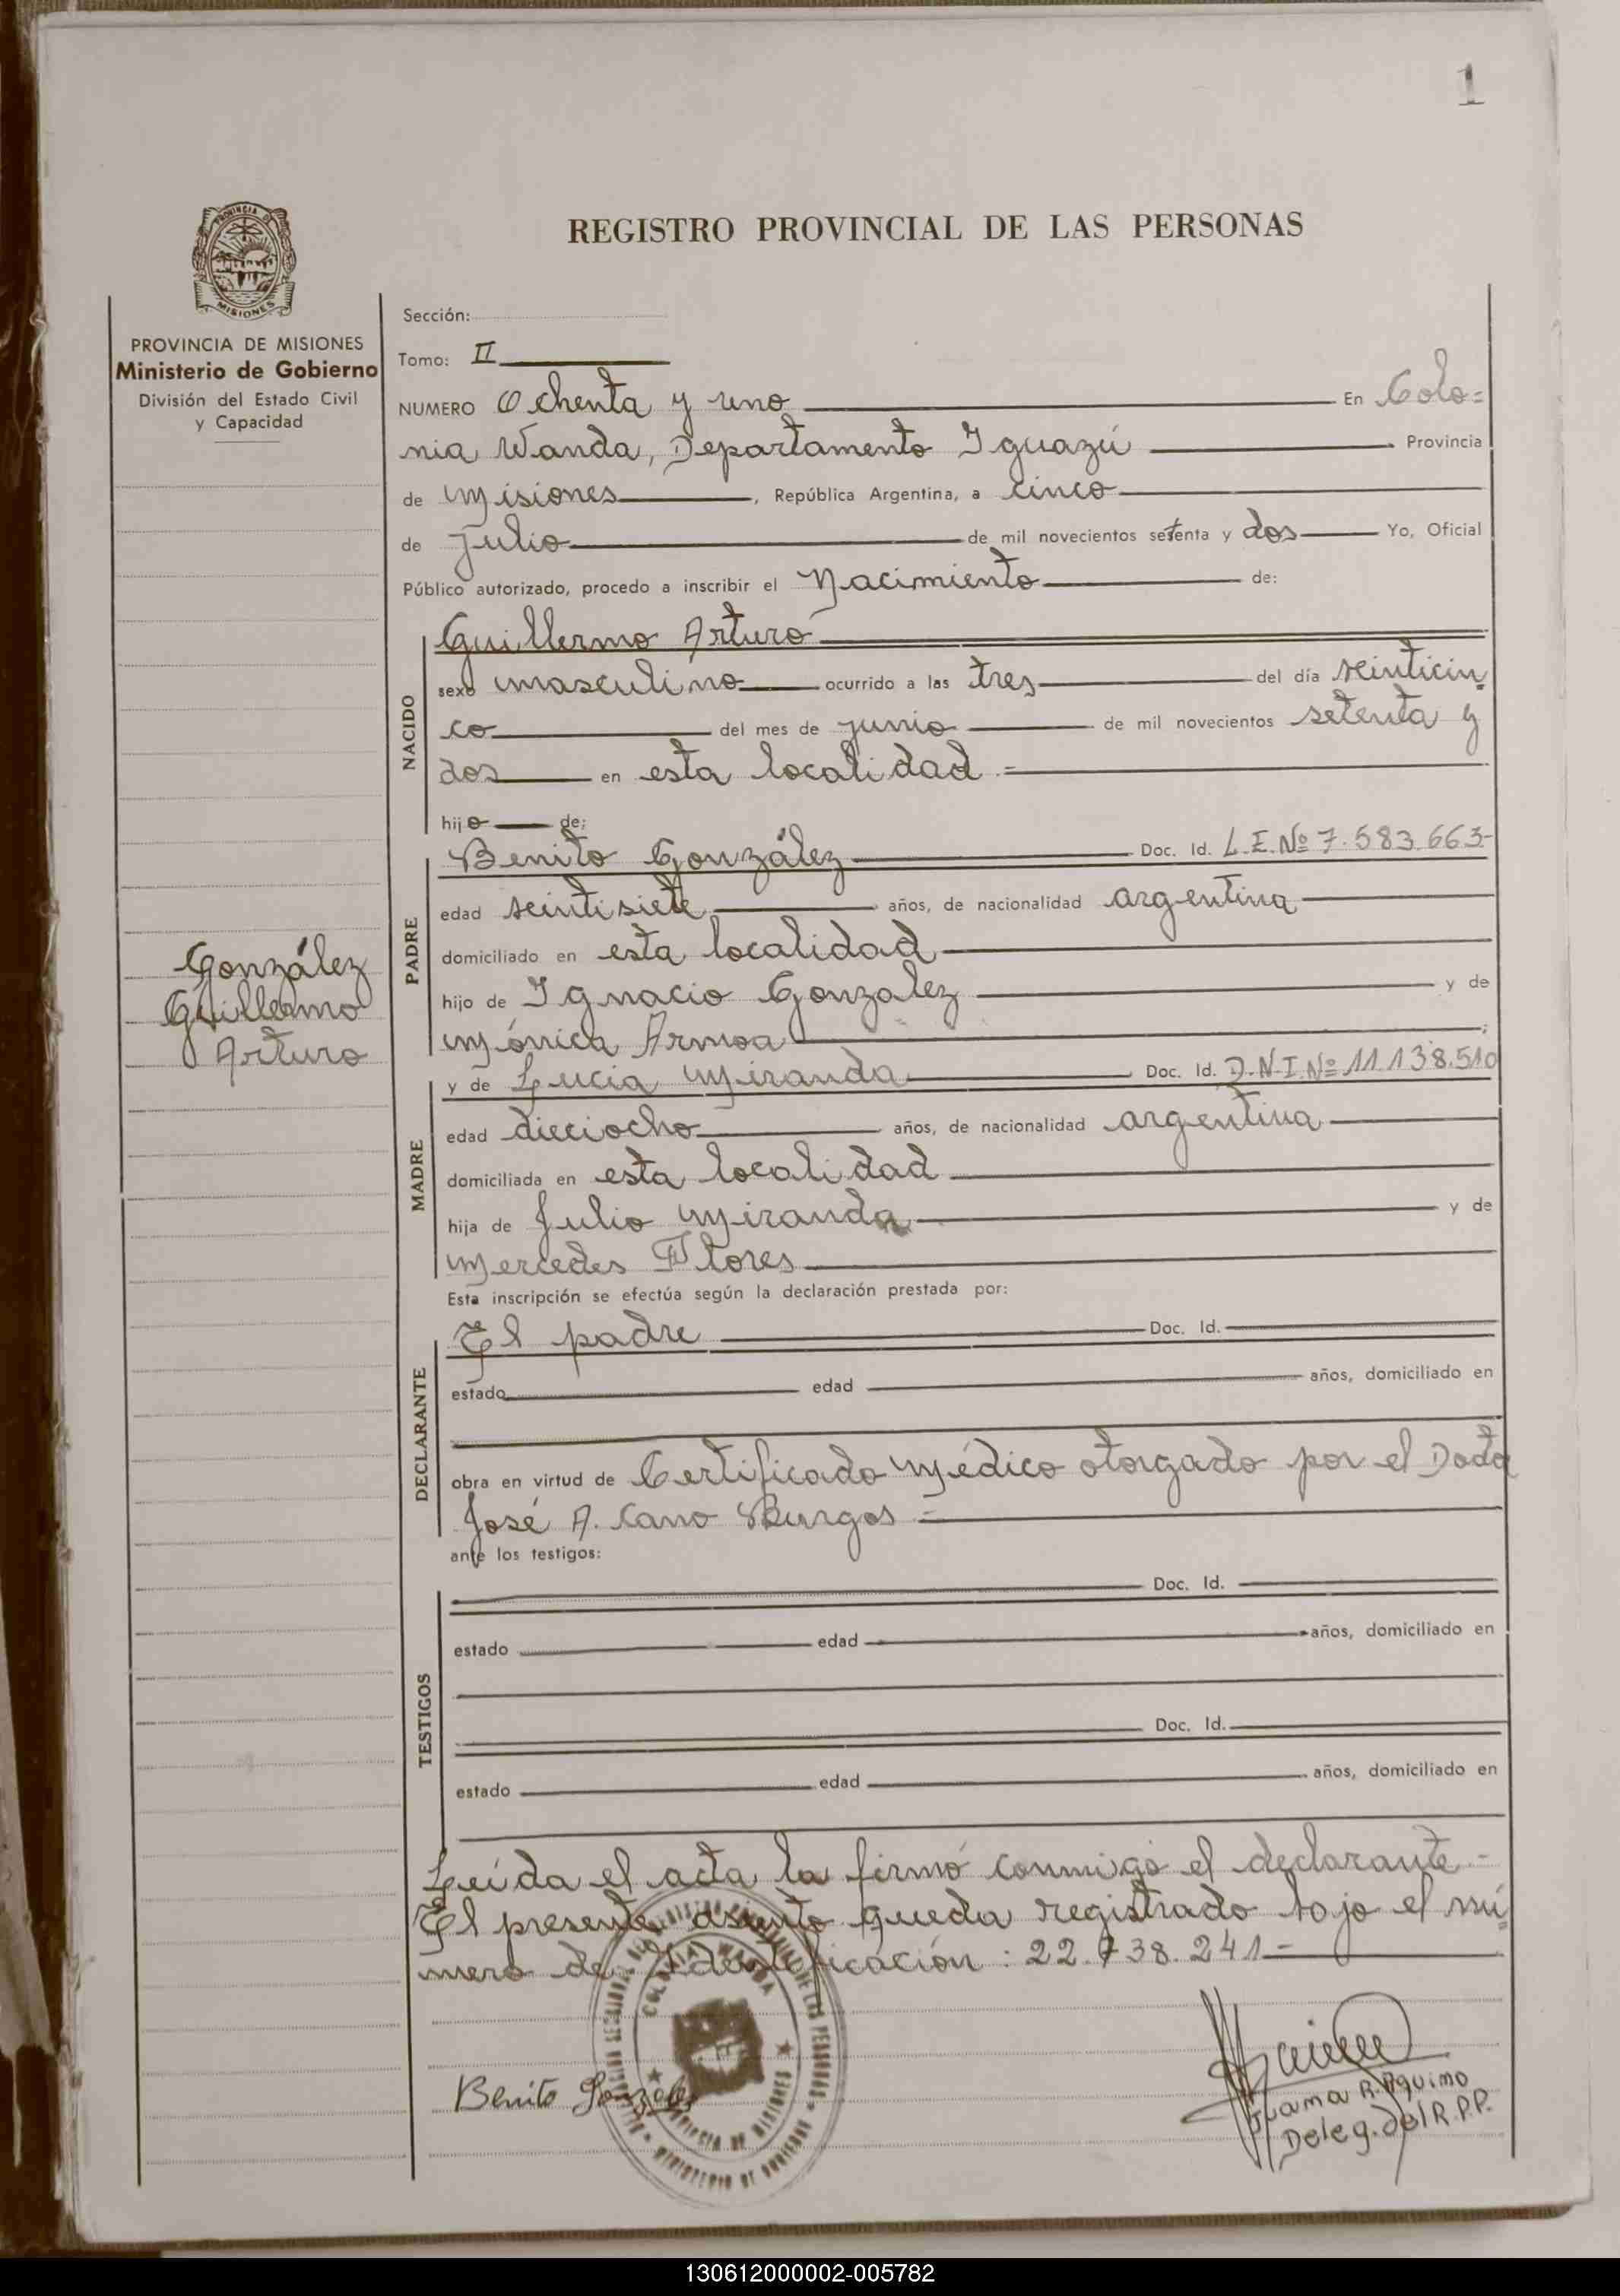 1
REGISTRO PROVINCIAL DE LAS PERSONAS
PROVINCIA DE
MISIONES
PROVINCIA DE MISIONES
Ministerio de Gobierno
División del Estado Civil
y Capacidad
González
Guillermo
Arturo
Sección:
Tomo: II
NUMERO Ochenta y uno En Colo=
nia Wanda, Departamento Iguazú Provincia
de Misiones, República Argentina, a cinco
de julio de mil novecientos setenta y dos Yo, Oficial
Público autorizado, procedo a inscribir el Nacimiento de:
NACIDO
Guillermo Arturo
sexo masculino ocurrido a las tres del día veinticin
co del mes de junio de mil novecientos setenta y
dos en esta localidad.=
hijo de:
PADRE
Benito González Doc. Id. L.E.Nº 7.583.663-
edad veintisiete años, de nacionalidad argentina
domiciliado en esta localidad
hijo de Ignacio Gonzalez y de
Mónica Armoa;
MADRE
y de Lucia Miranda Doc. Id. D.N.I.Nº 11.138.510
edad dieciocho años, de nacionalidad argentina
domiciliada en esta localidad
hija de Julio Miranda y de
Mercedes Flores
Esta inscripción se efectúa según la declaración prestada por:
DECLARANTE
El padre Doc. Id.
estado edad años, domiciliado en
obra en virtud de Certificado Médico otorgado por el Doctor
José A. Cano Burgos =
ante los testigos:
TESTIGOS
Doc. Id.
estado edad años, domiciliado en
Doc. Id.
estado edad años, domiciliado en
Leída el acta la firmó conmigo el declarante.-
El presente asiento queda registrado bajo el nú=
mero de Identificación: 22.738.241-
COLONIA WANDA
PROVINCIA DE MISIONES
MINISTERIO DE GOBIERNO
Benito Gonzalez
Juana R. Aquino
Deleg. del R.P.P.
130612000002-005782